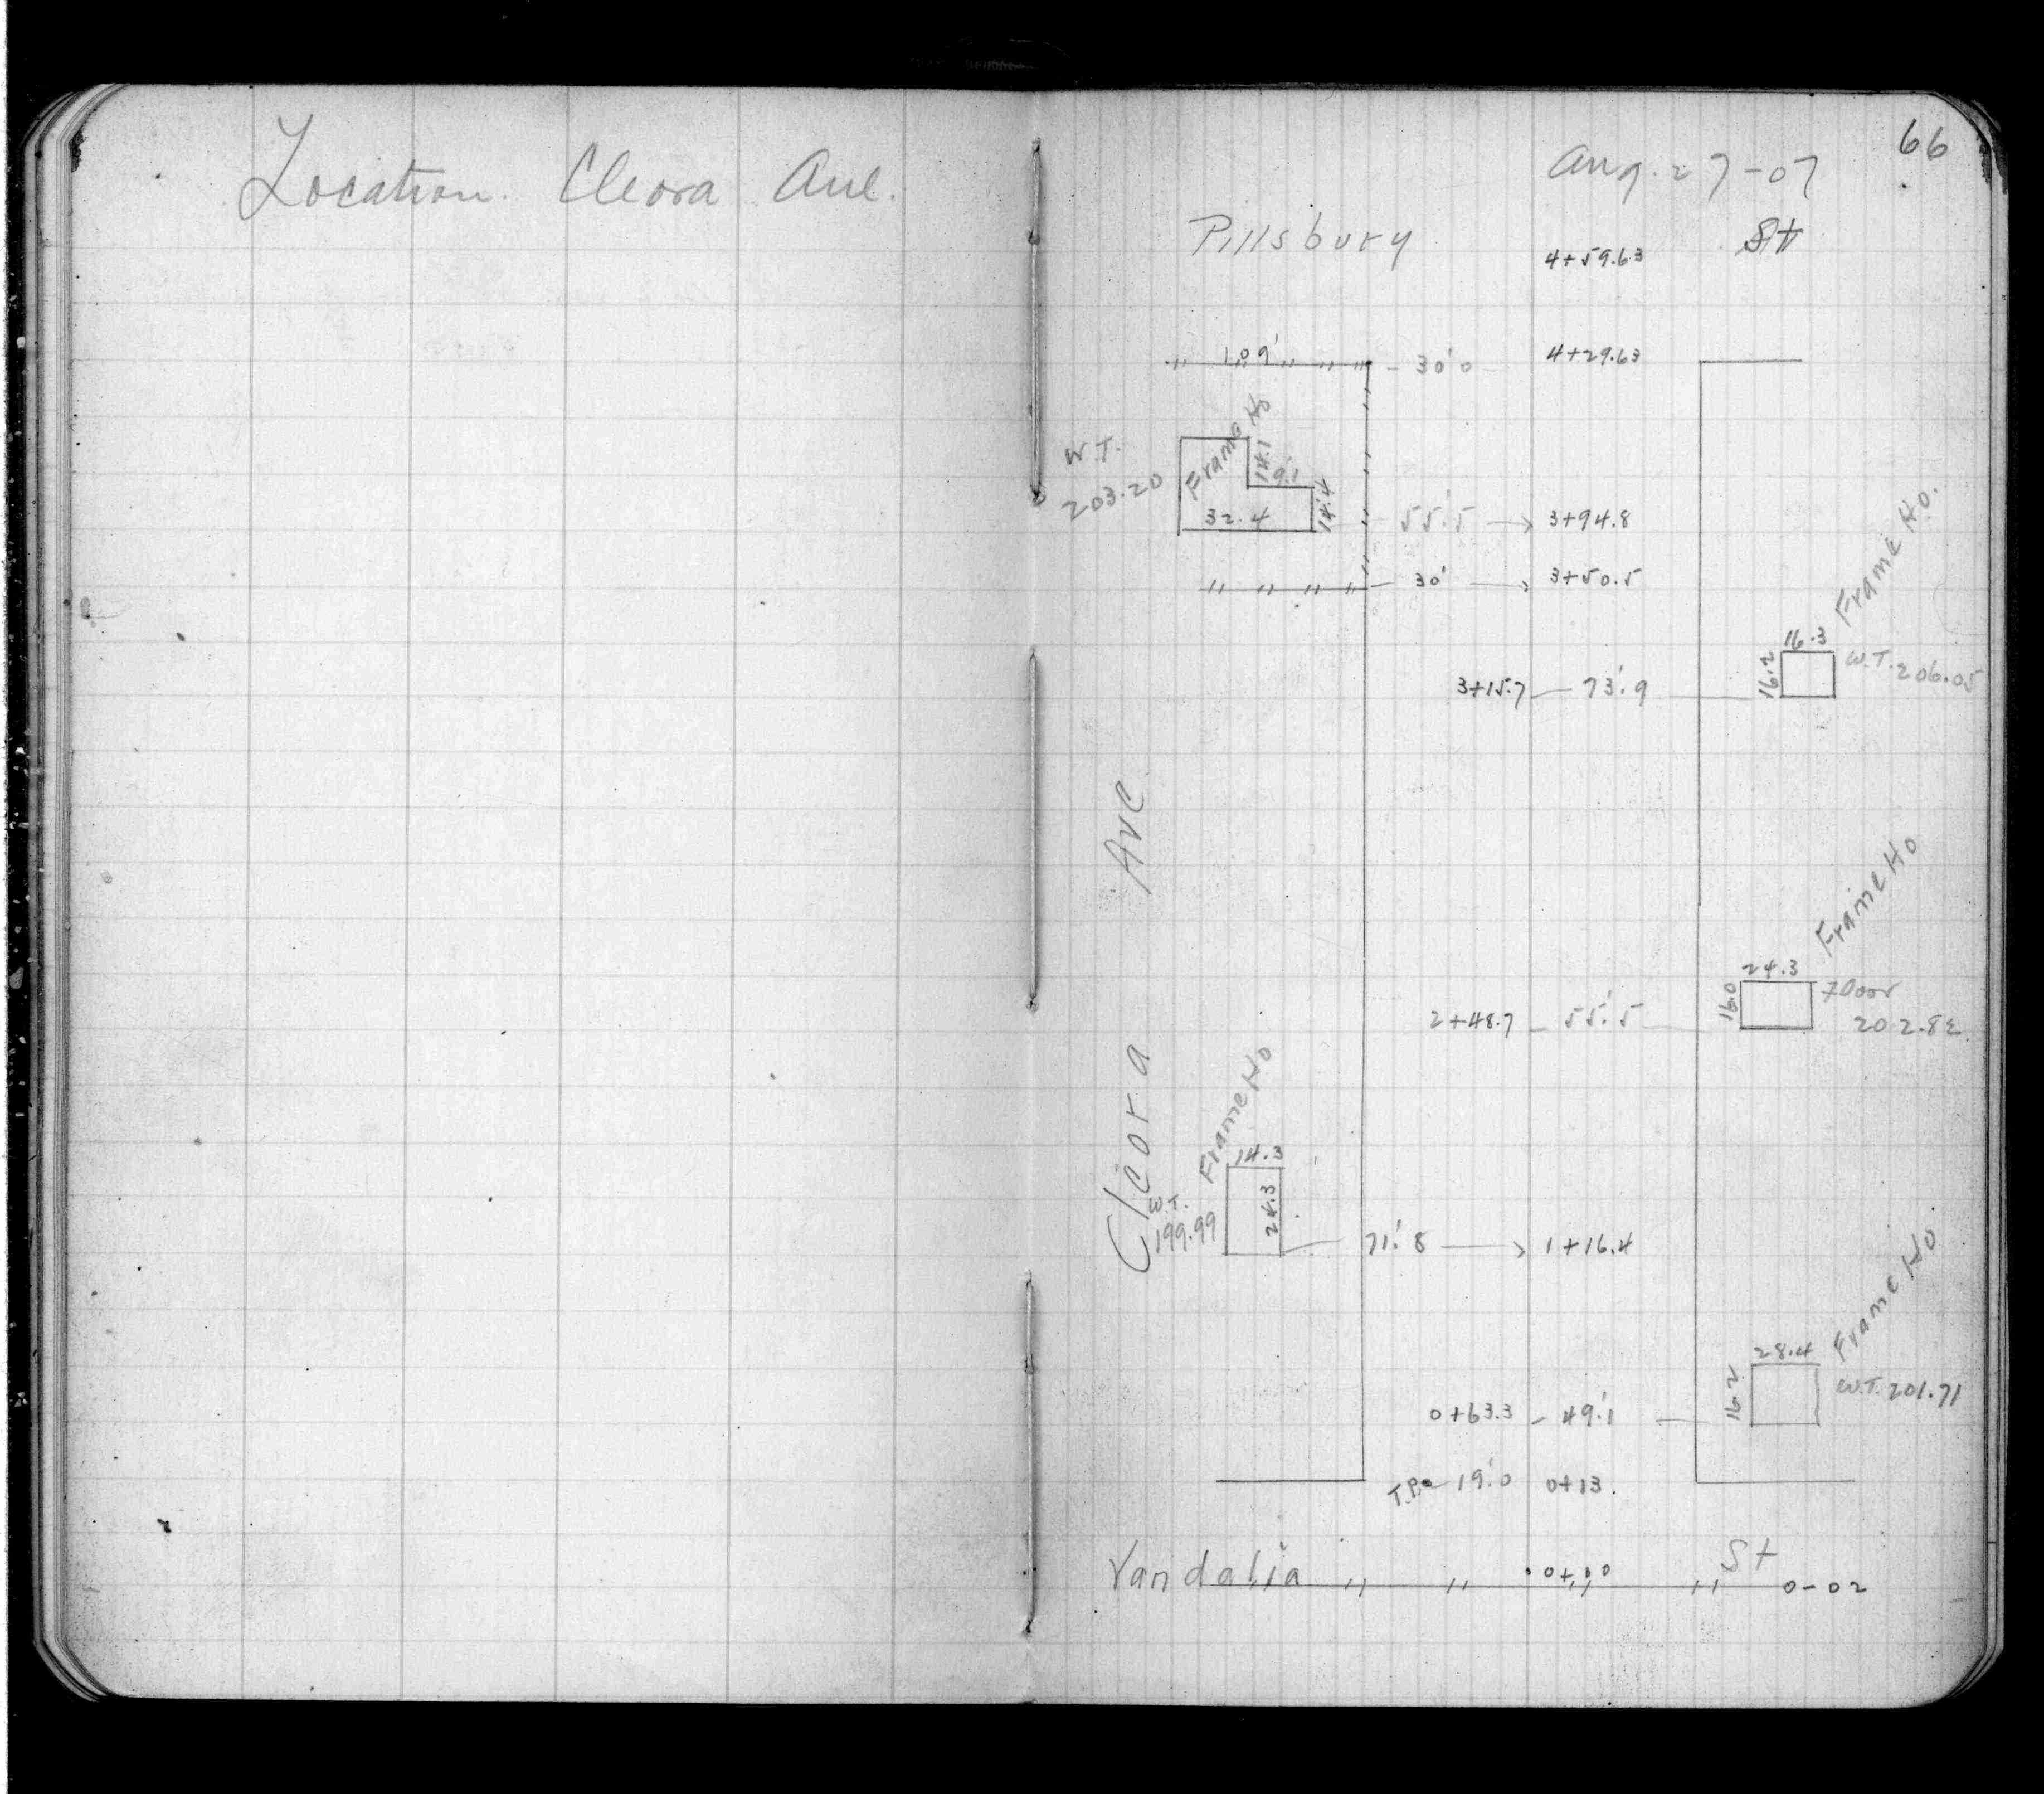 Location. Cleora Ave.
66
Aug. 27-07
Pillsbury St
4+59.63
109'
30'0
4+29.63
Frame Ho
W.T.
203.20
14.1
9.1
14.4
32.4
55'.5
3+94.8
30'
3+50.5
Frame Ho.
16.3
16.2
W.T. 206.05
3+15.7
73'.9
Cleora Ave
Frame Ho
24.3
16.0
Floor
202.82
2+48.7
55'.5
Frame Ho
14.3
24.3
W.T.
199.99
71'.8
1+16.4
Frame Ho
28.4
16.2
W.T. 201.71
0+63.3
49'.1
T.P. 19'.0
0+13.
Vandalia St
0+00
0-02